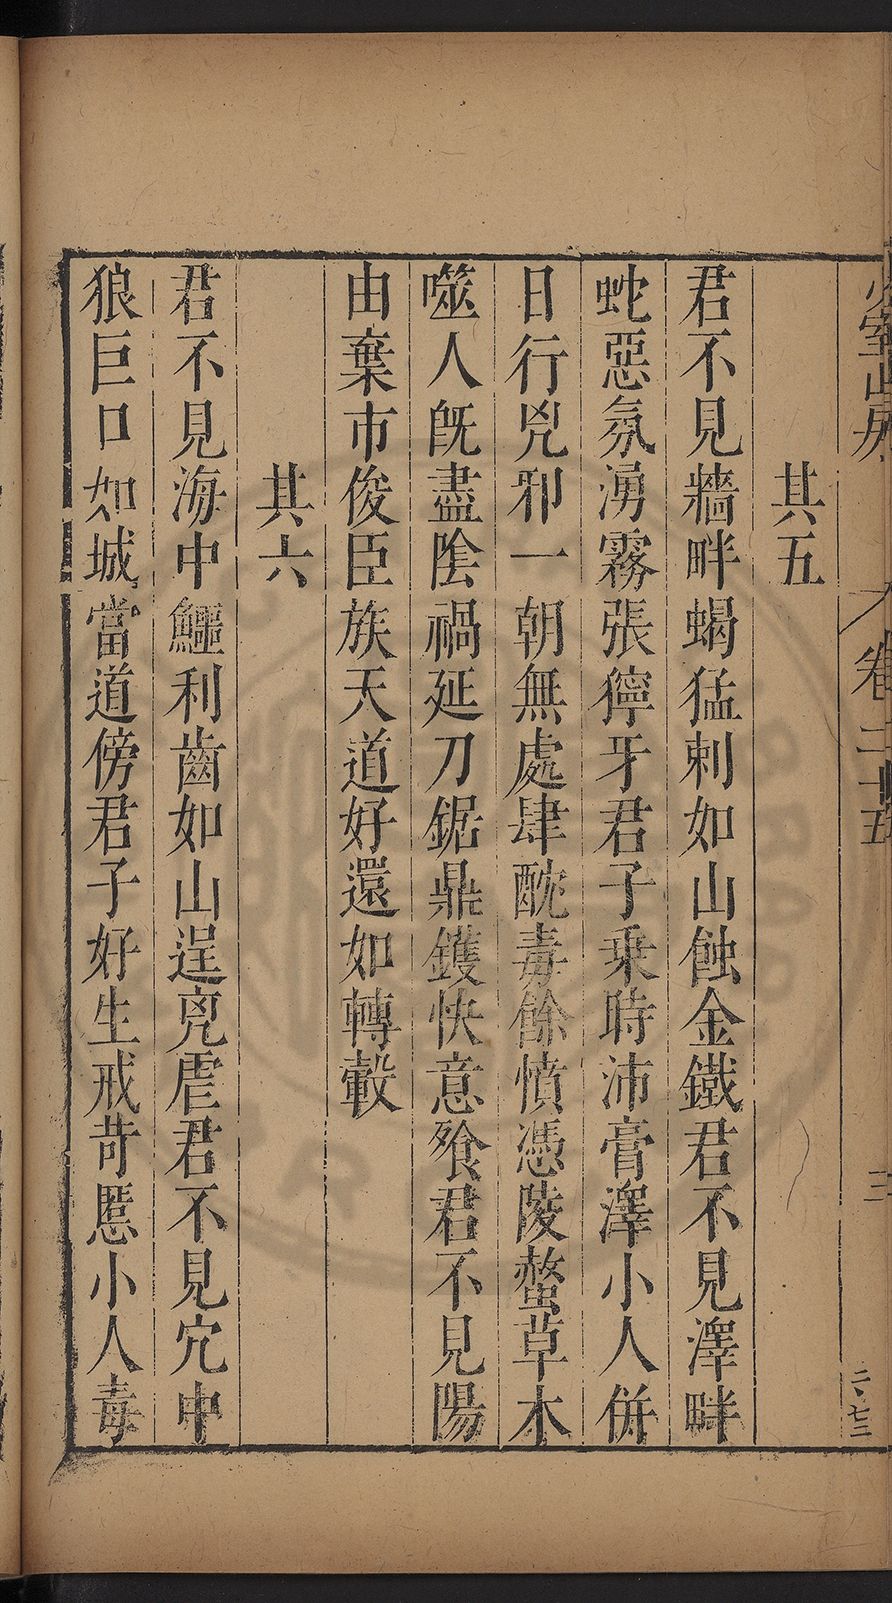 室山房
卷二十五
三
二、七三
其五
君不見牆畔蝎猛刺如山蝕金鐵君不見澤畔
蛇惡氛湧霧張獰牙君子乗時沛膏澤小人併
日行兇邪一朝無處肆酖毒餘憤憑陵螫草木
噬人旣盡陰禍延刀鋸鼎鑊快意飱君不見陽
由棄市俊臣族天道好還如轉轂
其六
君不見海中鱷利齒如山逞兇虐君不見穴中
狼巨口如城當道傍君子好生戒苛慝小人毒